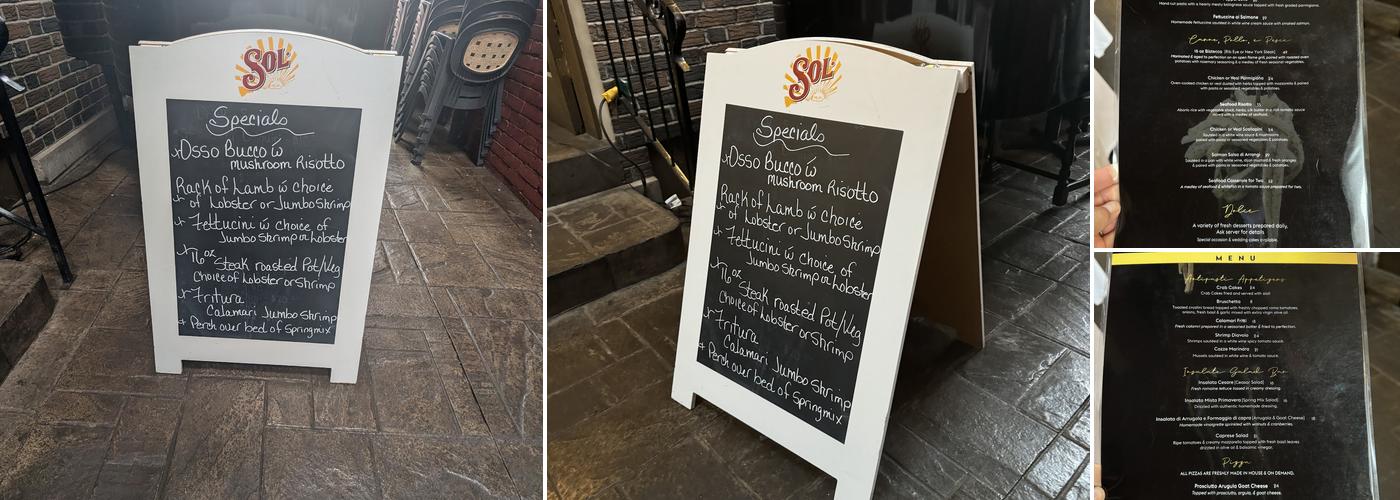 SOL
Specials
Osso Bucco w
mushroom Risotto
Rack of Lamb w choice
of Lobster or Jumbo Shrimp
Fettucini w choice of
Jumbo Shrimp or Lobster
16 oz
Steak roasted Pot/Veg
Choice of Lobster or shrimp
Fritura
Calamari Jumbo Shrimp
Perch over bed of Springmix
SOL
Specials
Osso Bucco w
mushroom Risotto
Rack of Lamb w choice
of Lobster or Jumbo Shrimp
Fettucini w choice of
Jumbo Shrimp or Lobster
16 oz
Steak roasted Pot/Veg
Choice of Lobster or shrimp
Fritura
Calamari Jumbo Shrimp
Perch over bed of Springmix
Hand cut pasta with a hearty meaty bolognese sauce topped with fresh grated parmigiano.
Fettuccine al Salmone
Homemade fettuccine sautéed in white cream sauce with smoked salmon.
Carne, Pollo, e Pesce
16 oz Bistecca (Rib Eye or New York Steak)
Marinated & aged to perfection on an open flame grill, paired with roasted oven
potatoes with rosemary seasoning & a medley of fresh seasonal vegetables.
Chicken or Veal Parmigiana
Oven-cooked chicken or veal dusted with herbs topped with mozzarella & paired
with pasta or seasoned vegetables & potatoes.
Seafood Risotto
Aborio rice with vegetable stock, herbs, silk butter in a rich tomato sauce
mixed with a medley of seafood.
Chicken or Veal Scallopini
Sautéed in a white wine sauce & mushrooms
paired with pasta or seasoned vegetables & potatoes.
Salmon Salsa di Arrangi
Sautéed in a pan with white wine, dijon mustard & fresh oranges
& paired with pasta or seasoned vegetables & potatoes.
Seafood Casserole for Two
A medley of seafood & whitefish in a tomato sauce prepared for two.
Dolce
A variety of fresh desserts prepared daily,
Ask server for details
Special occasion & wedding cakes available.
MENU
Antipasti Appetizers
Crab Cakes
Crab Cakes fried and served with aioli
Bruschetta
Toasted crostini bread topped with freshly chopped roma tomatoes,
onions, fresh basil & garlic mixed with extra virgin olive oil.
Calamari Fritti
Fresh calamari prepared in a seasoned batter & fried to perfection.
Shrimp Diavolo
Shrimps sautéed in a white wine spicy tomato sauce.
Cozze Marinara
Mussels sautéed in white wine & tomato sauce.
Insalate Salad Bar
Insalata Cesare (Ceasar Salad)
Fresh romaine lettuce tossed in creamy dressing.
Insalata Mista Primavera (Spring Mix Salad)
Drizzled with authentic homemade dressing.
Insalata di Arrugola e Formaggio di capra (Arrugula & Goat Cheese)
Homemade vinaigrette sprinkled with walnuts & cranberries.
Caprese Salad
Ripe tomatoes & creamy mozzarella topped with fresh basil leaves
drizzled in olive oil & balsamic vinegar.
Pizza
ALL PIZZAS ARE FRESHLY MADE IN HOUSE & ON DEMAND.
Prosciutto Arugula Goat Cheese
Topped with prosciutto, arugula, & goat cheese.